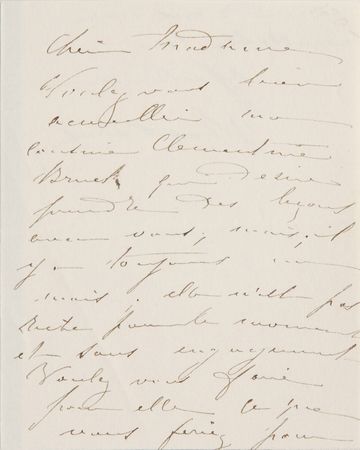 Chère Madame
Voulez vous bien
accueillir ma
cousine Clémentine
Bruck qui désire
prendre des leçons
avec vous, mais, il
y a toujours un
mais, elle n'est pas
riche pour le moment
et sans engagement
Voulez vous faire
pour elle ce que
vous feriez pour